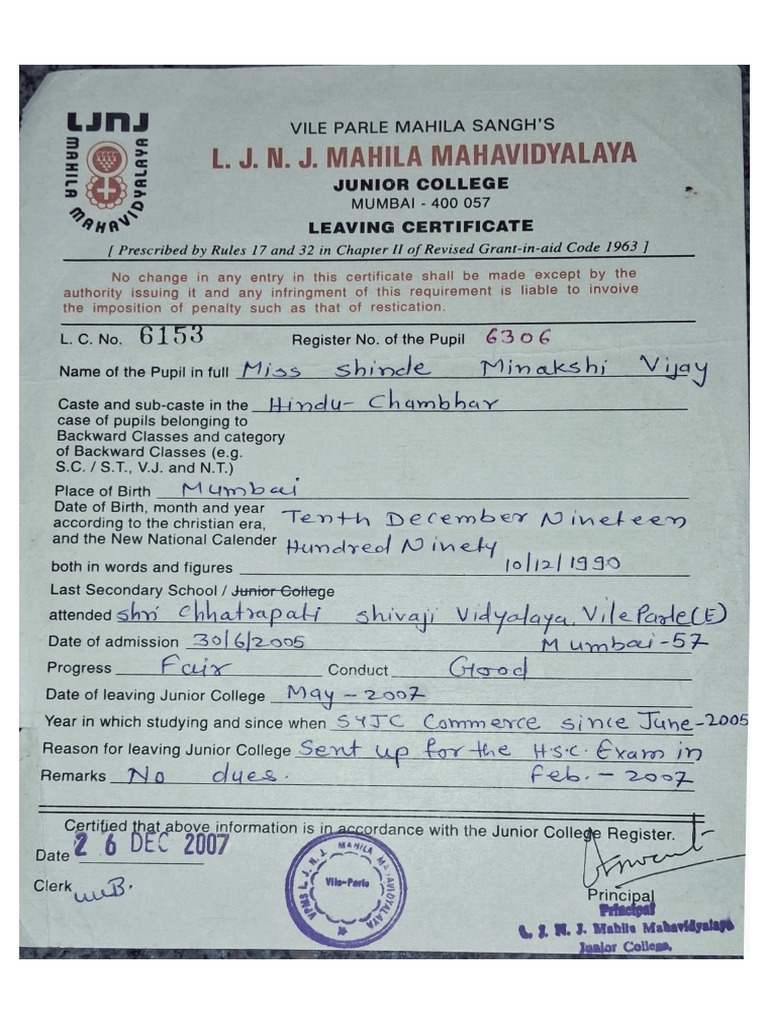 LJNJ
MAHILA MAHAVIDYALAYA
VILE PARLE MAHILA SANGH'S
L. J. N. J. MAHILA MAHAVIDYALAYA
JUNIOR COLLEGE
MUMBAI - 400 057
LEAVING CERTIFICATE
[ Prescribed by Rules 17 and 32 in Chapter II of Revised Grant-in-aid Code 1963 ]
No change in any entry in this certificate shall be made except by the
authority issuing it and any infringment of this requirement is liable to invoive
the imposition of penalty such as that of restication.
L. C. No. 6153 Register No. of the Pupil 6306
Name of the Pupil in full Miss Shinde Minakshi Vijay
Caste and sub-caste in the Hindu- Chambhar
case of pupils belonging to
Backward Classes and category
of Backward Classes (e.g.
S.C. / S.T., V.J. and N.T.)
Place of Birth Mumbai
Date of Birth, month and year
according to the christian era, Tenth December Nineteen
and the New National Calender Hundred Ninety
both in words and figures 10/12/1990
Last Secondary School / Junior College
attended Shri Chhatrapati Shivaji Vidyalaya, Vile Parle(E)
Date of admission 30/6/2005 Mumbai-57
Progress Fair Conduct Good
Date of leaving Junior College May - 2007
Year in which studying and since when SYJC Commerce since June-2005
Reason for leaving Junior College Sent up for the H.S.C. Exam in
Remarks No dues. Feb. - 2007
Certified that above information is in accordance with the Junior College Register.
Date 26 DEC 2007
Clerk
VPMS L. J. N. J. MAHILA MAHAVIDYALAYA
Vile-Parle
Principal
Principal
L. J. N. J. Mahila Mahavidyalaya
Junior College.